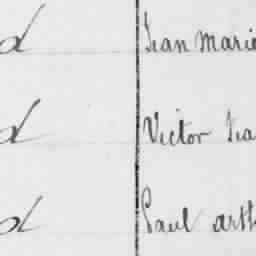 d Jean Marie
d Victor Jea
d Paul arth